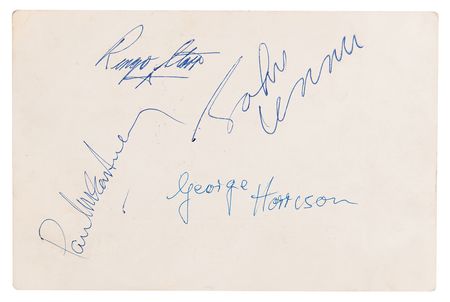 Ringo Starr
John
Lennon
Paul McCartney
George Harrison